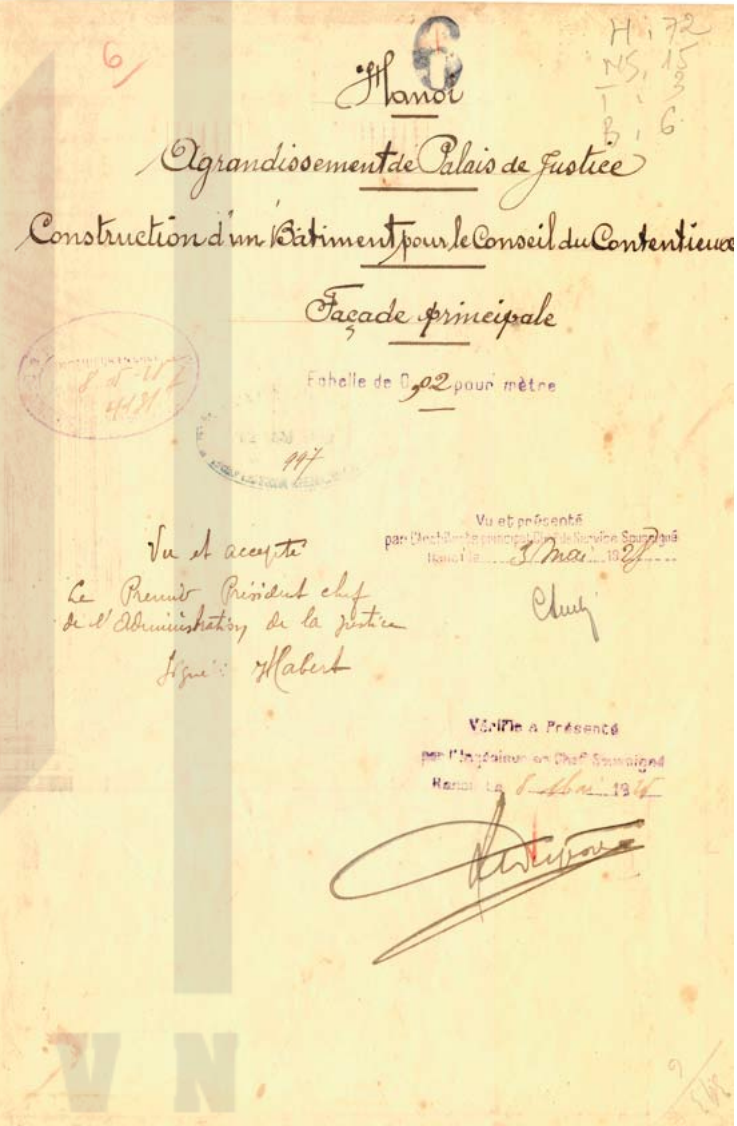 6
6
H : 72
NS. 15
T : 3
B : 6
Hanoï
Agrandissement de Palais de Justice
Construction d'un Bâtiment pour le Conseil du Contentieux
Façade principale
Echelle de 0,02 pour mètre
4131
997
Vu et accepté
Le Premier Président chef
de l'Administration de la justice
Signé : Habert
Vu et présenté
par l'Architecte principal Chef de Service Soussigné
Hanoï le 3 Mai 192
Vérifié & Présenté
par l'Ingénieur en Chef Soussigné
Hanoï Le 8 Mai 19
VN